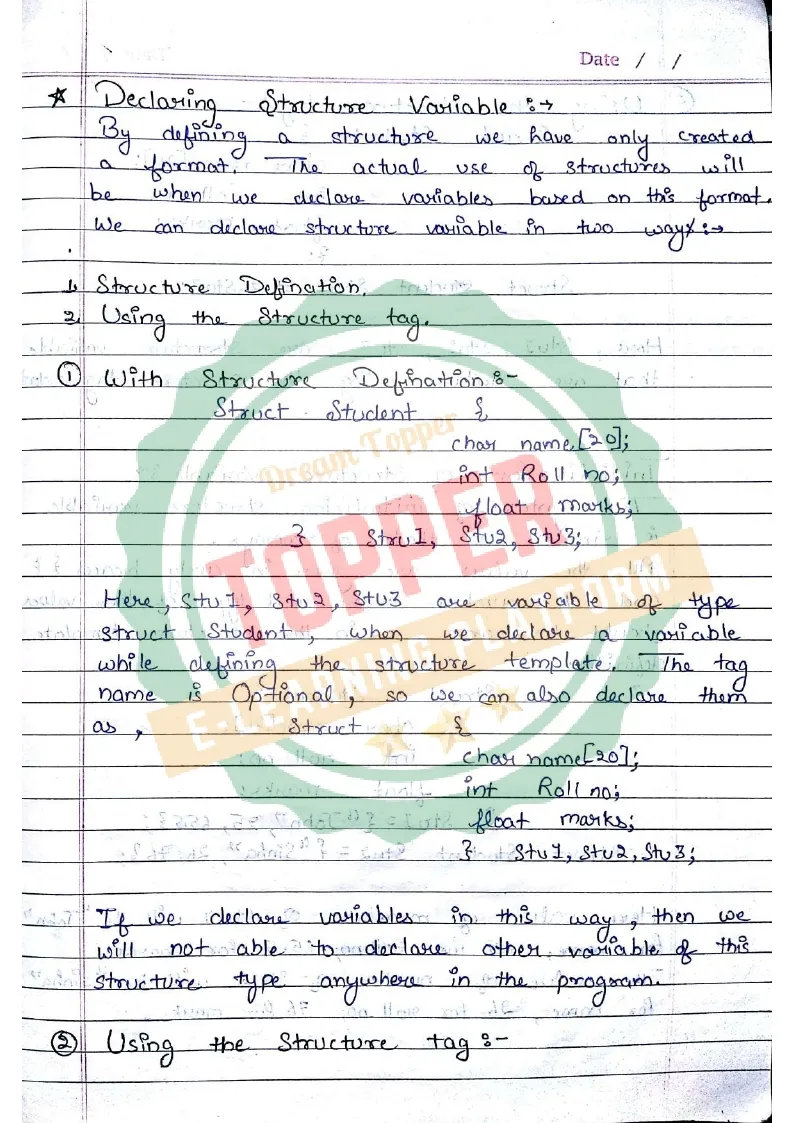 Date / /
Declaring Structure Variable :→
By defining a structure we have only created
a format. The actual use of structures will
be when we declare variables based on this format.
We can declare structure variable in two way :→
1. Structure Defination.
2. Using the Structure tag.
① With Structure Defination :-
Struct Student {
char name[20];
int Roll no;
float marks;
} Stru1, Stu2, Stu3;
Here, Stu1, Stu2, Stu3 are variable of type
struct Student, when we declare a variable
while defining the structure template. The tag
name is Optional, so we can also declare them
as, Struct {
char name[20];
int Roll no;
float marks;
} Stu1, Stu2, Stu3;
If we declare variables in this way, then we
will not able to declare other variable of this
structure type anywhere in the program.
② Using the Structure tag :-
Dream Topper
TOPPER
E-LEARNING PLATFORM